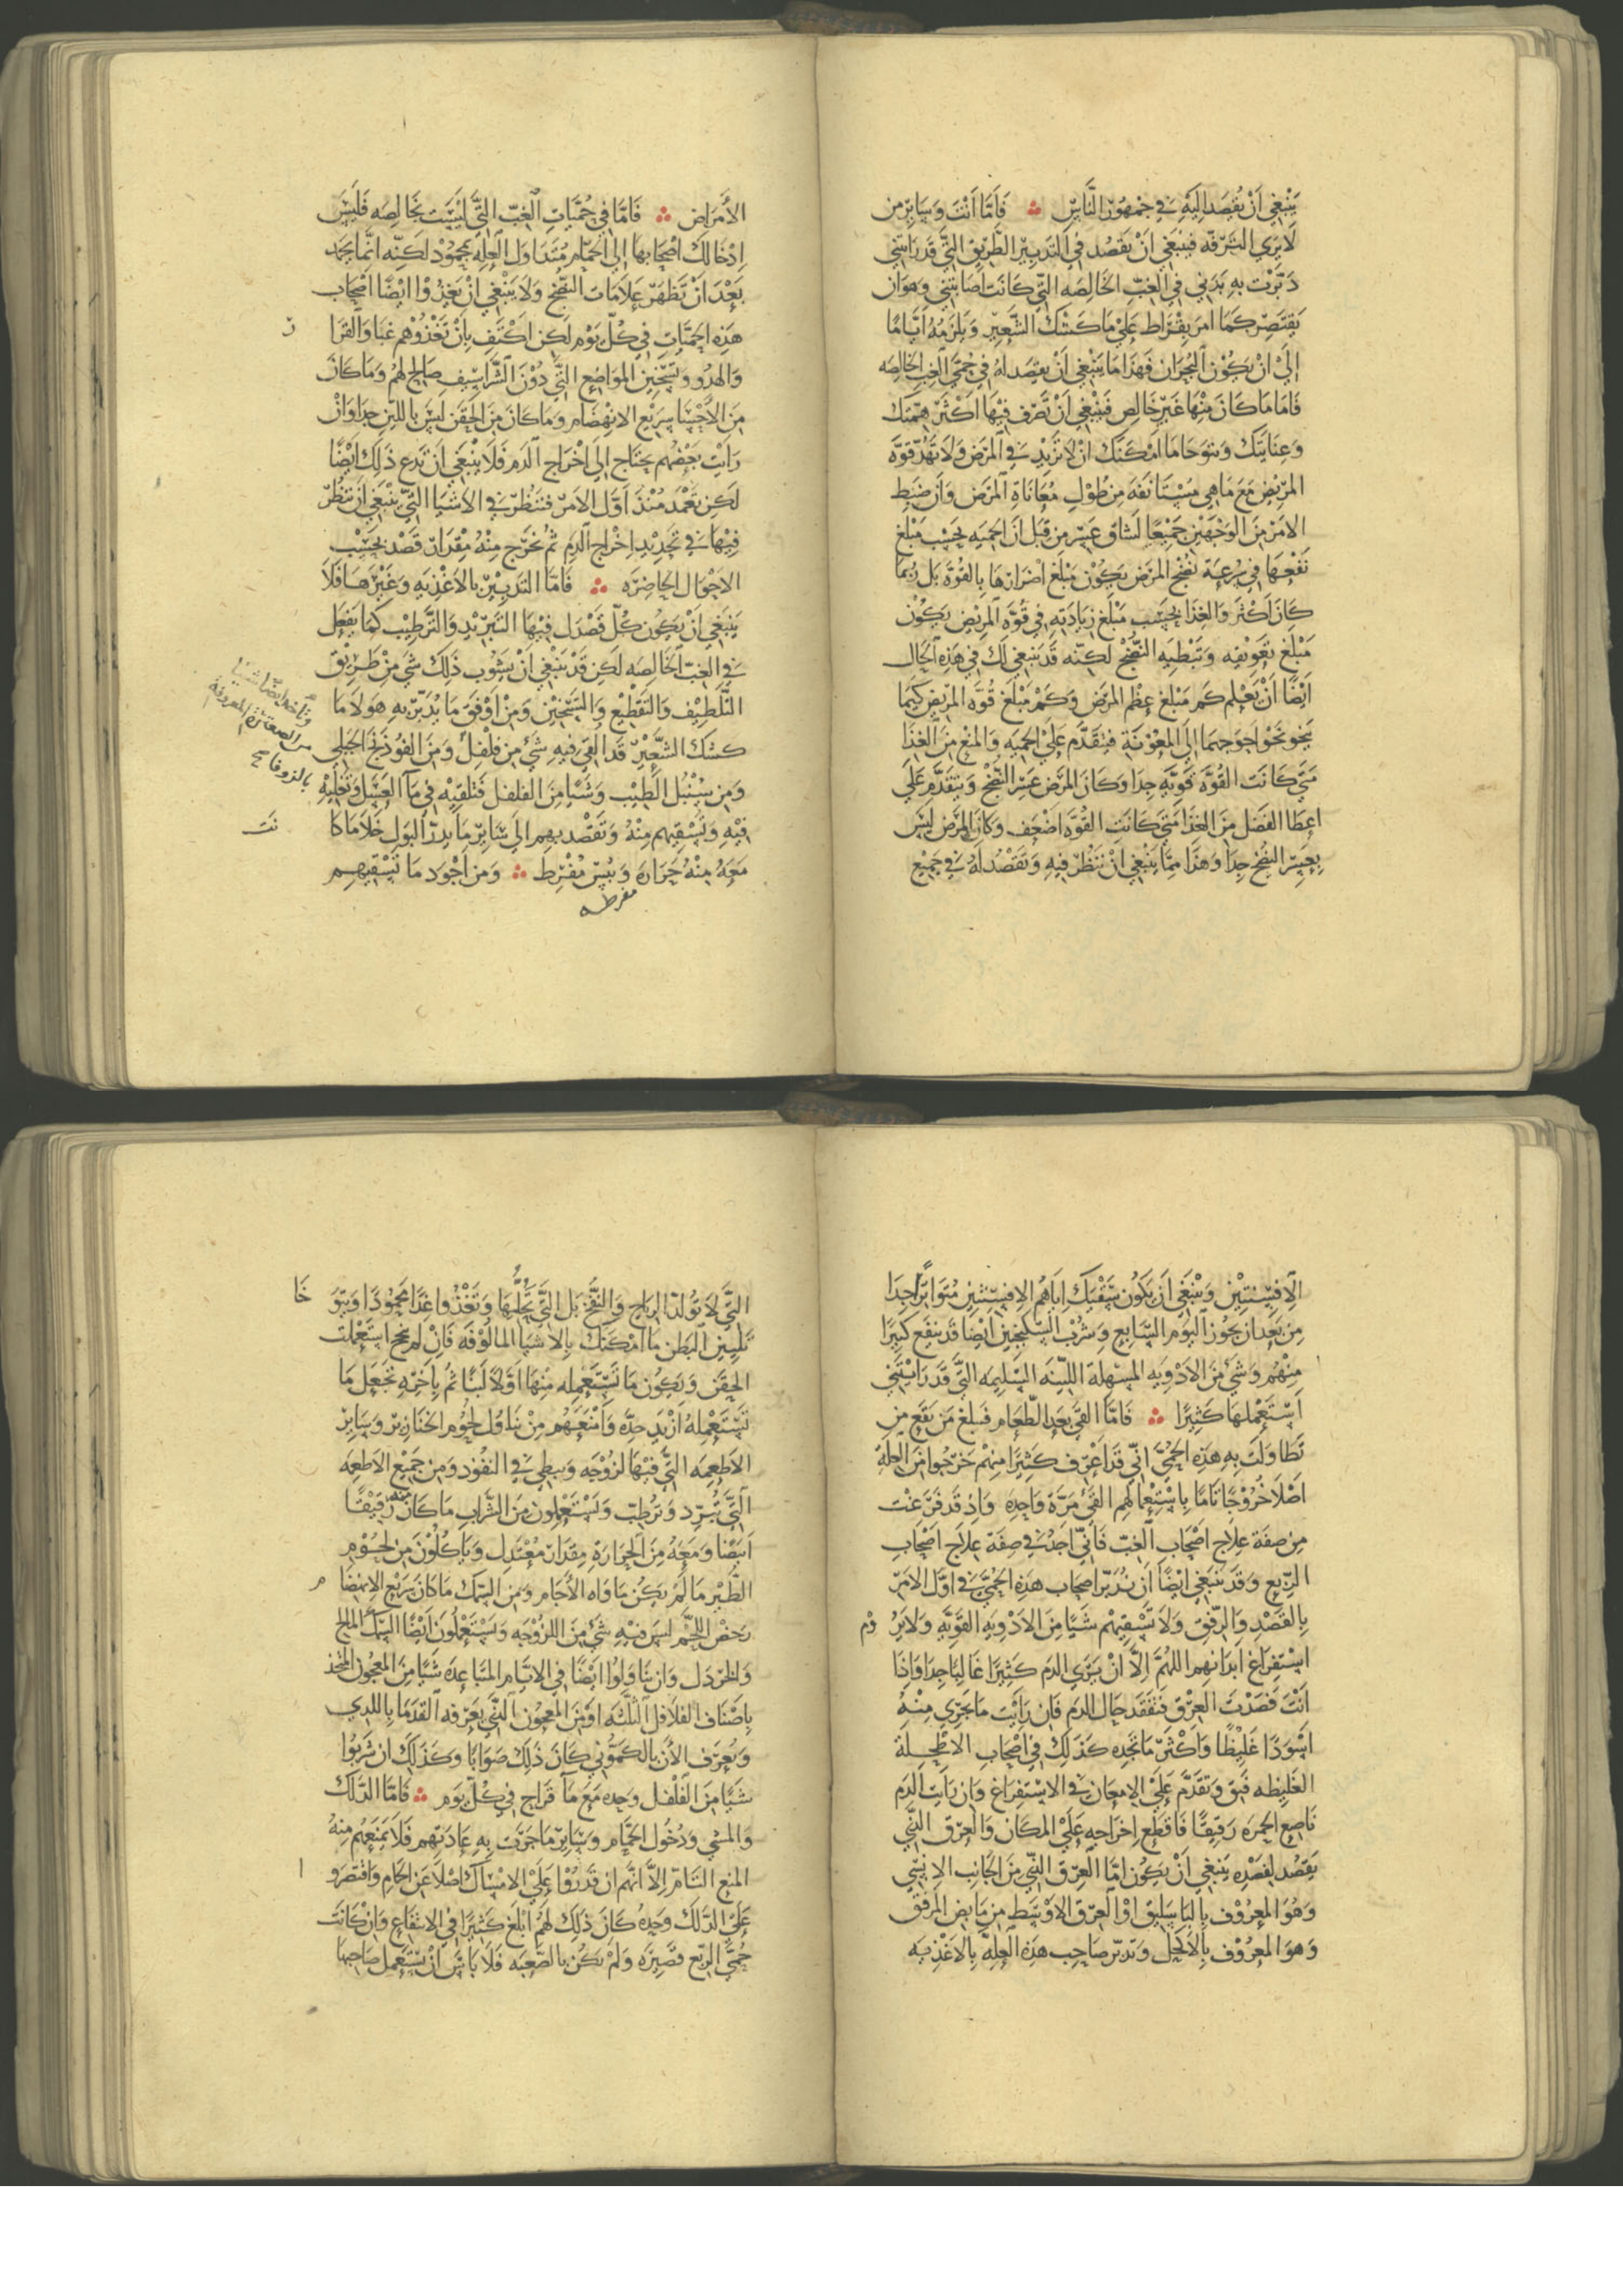 ينبغي أن يقصد إليه في جمهور الناس ∴ فأما أنت وسائر من
لا يري الترفه فينبغي أن يقصد في التدبير الطريق التي قد رأيتني
دبرت به بدني في الغب الخالصه التي كانت أصابتني وهو ان
يقتصر كما امر بقراط علي ماكشك الشعير ويلزمه أيّامًا
إلي ان يكون البحران فهذا ما ينبغي أن يقصد له في حمي الغب الخالصه
فاما ما كان منها غير خالص فينبغي أن تصرف فيها اكثر همتك
وعنايتك وتتوخا ما امكنك ان لا تزيد في المرض ولا تهد قوة
المريض مع ما هي مستانفه من طول معاناة المرض وان ضبط
الامر من الوجهين جميعًا لشاق عسر من قبل ان الحميه بحسب مبلغ
نفعها في سرعة نضج المرض يكون مبلغ اضرارها بالقوة بل ربما
كان اكثر والغذا بحسب مبلغ زيادته في قوة المريض يكون
مبلغ تعويقه وتبطيه النضج لكنه قد ينبغي لك في هذه الحال
ايضًا ان تعلم كم مبلغ عظم المرض وكم مبلغ قوة المريض كيما
ينحو نحو احوجهما إلي المعونة فتقدم علي الحميه والمنع من الغذا
متي كانت القوة قويه جدا وكان المرض عسر النضج وتتقدم علي
اعطا الفضل من الغذا متي كانت القوة اضعف وكان المرض ليس
بعسر النضج جدا وهذا مما ينبغي ان تنظر فيه وتقصد له في جميع
الأمراض ∴ فاما في حميات الغب التي ليست بخالصه فليس
ادخالك اصحابها إلي الحمام متد اول العله بمحمود لكنه انما يحمد
بعد ان تظهر علامات النضج ولا ينبغي ان يغذوا ايضًا اصحاب
هذه الحميات في كل يوم لكن اكتف بان تغذوهم غبا والقرا ر
والهدو وتسخين المواضع التي دون الشراسيف صالح لهم وما كان
من الاحسا سريع الانهضام وما كان من الحقن ليس باللين جدا وان
رايت بعضهم يحتاج إلي اخراج الدم فلا ينبغي ان تدع ذلك ايضًا
لكن تعمد منذ اول الامر فتنظر في الاشيا التي ينبغي ان تنظر
فيها في تحديد اخراج الدم ثم تخرج منه مقدار قصد بحسب
الاحوال الحاضره ∴ فاما التدبير بالاغذيه وغيرها فلا
ينبغي ان يكون كل قصدك فيها التبريد والترطيب كما يفعل
في الغب الخالصه لكن قد ينبغي ان يشوب ذلك شي من طريق
التلطيف والتقطيع والتسخين ومن اوفق ما يدبر به هولا ما
كشك الشعير قد القي فيه شي من فلفل ومن الفوذنج الجبلي
وتاخذ ايضا شيا
من الصعتر المعروفة
بالزوفا صح
ومن سنبل الطيب وشيا من الفلفل فتلقيه في ما العسل وتغليه
فيه وتسقيهم منه وتقصد بهم الي سائر ما يدر البول خلا ما كا نت
معه منه حراره ويبس مفرط ∴ ومن اجود ما تسقيهم
مفرطه
الافسنتين وينبغي ان يكون سقيك اياهم الافسنتين متواترًا جدا
من بعد ان يجوز اليوم السابع وشرب السكنجبين ايضا قد ينفع كثيرًا
منهم وشي من الادويه المسهلة اللينه السليمه التي قد رايتني
استعملها كثيرًا ∴ فاما القي بعد الطعام فبلغ من نفع من
تطاولت به هذه الحمي اني قد اعرف كثيرًا منهم خرجوا من العلة
اصلا خروجًا تامًا باستعمالهم القي مرة واحده واذ قد فرغت
من صفة علاج اصحاب الغب فاني اخذ في صفة علاج اصحاب
الربع وقد ينبغي ايضًا ان ندبر اصحاب هذه الحمي في اول الامر
بالقصد والرفق ولا تسقيهم شيًا من الادويه القويه ولا ير وم
استفراغ ابدانهم اللهم الا ان يري الدم كثيرًا غالبًا جدا واذا
انت فصدت العرق فتفقد حال الدم فان رايت ما يجري منه
اسودًا غليظًا واكثر ما تجده كذلك في اصحاب الاطحلة
الغليظه فثق وتقدم علي الامعان في الاستفراغ وان رايت الدم
ناصع الحمره رقيقًا فاقطع اخراجه علي المكان والعرق التي
يقصد لفصده ينبغي ان يكون اما العرق التي من الجانب الانسي
وهو المعروف بالباسليق او العرق الاوسط من مابض المرفق
وهو المعروف بالاكحل وتدبر صاحب هذه العلة بالاغذيه
التي لا تولد الرياح والنفخ بل التي تحللها وتغذوا غذا محمودًا ويتو خا
تليين البطن ما امكنك بالاشيا المالوفه فان لم تنجح استعملت
الحقن ويكون ما تستعمله منها اولا لينا ثم باخره تجعل ما
تستعمله ازيد حده وامنعهم من تناول لحوم الخنازير وسائر
الاطعمه التي فيها لزوجه وبطي في النفوذ ومن جميع الاطعمه
التي تبرد وترطب ويستعملون من الشراب ما كان منه رقيقًا
ابيضا ومعه من الحرارة مقدار معتدل وياكلون من لحوم
الطير ما لم يكن ماواه الاجام ومن السمك ما كان سريع الانهضا م
رخص اللحم ليس فيه شي من اللزوجه ويستعملون ايضًا السمك المالح
والخردل وان يناولوا ايضًا في الايام المتباعده شيًا من المعجون المتخذ
باصناف الفلافل الثلثه او من المعجون التي يعرفه القدما باللدي
ويعرف الآن بالكموني كان ذلك صوابًا وكذلك ان شربوا
شيًا من الفلفل وحده مع مآ قراح في كل يوم ∴ فاما الدلك
والمشي ودخول الحمام وسائر ما جرت به عادتهم فلا يمنعهم منه
المنع التام الا انهم ان قدروا علي الامساك اصلا عن الحمام واقتصرو ا
علي الدلك وحده كان ذلك لهم ابلغ كثيرًا في الانتفاع وان كانت
حمي الربع قصيره ولم تكن بالصعبه فلا باس ان يستعمل صاحبها